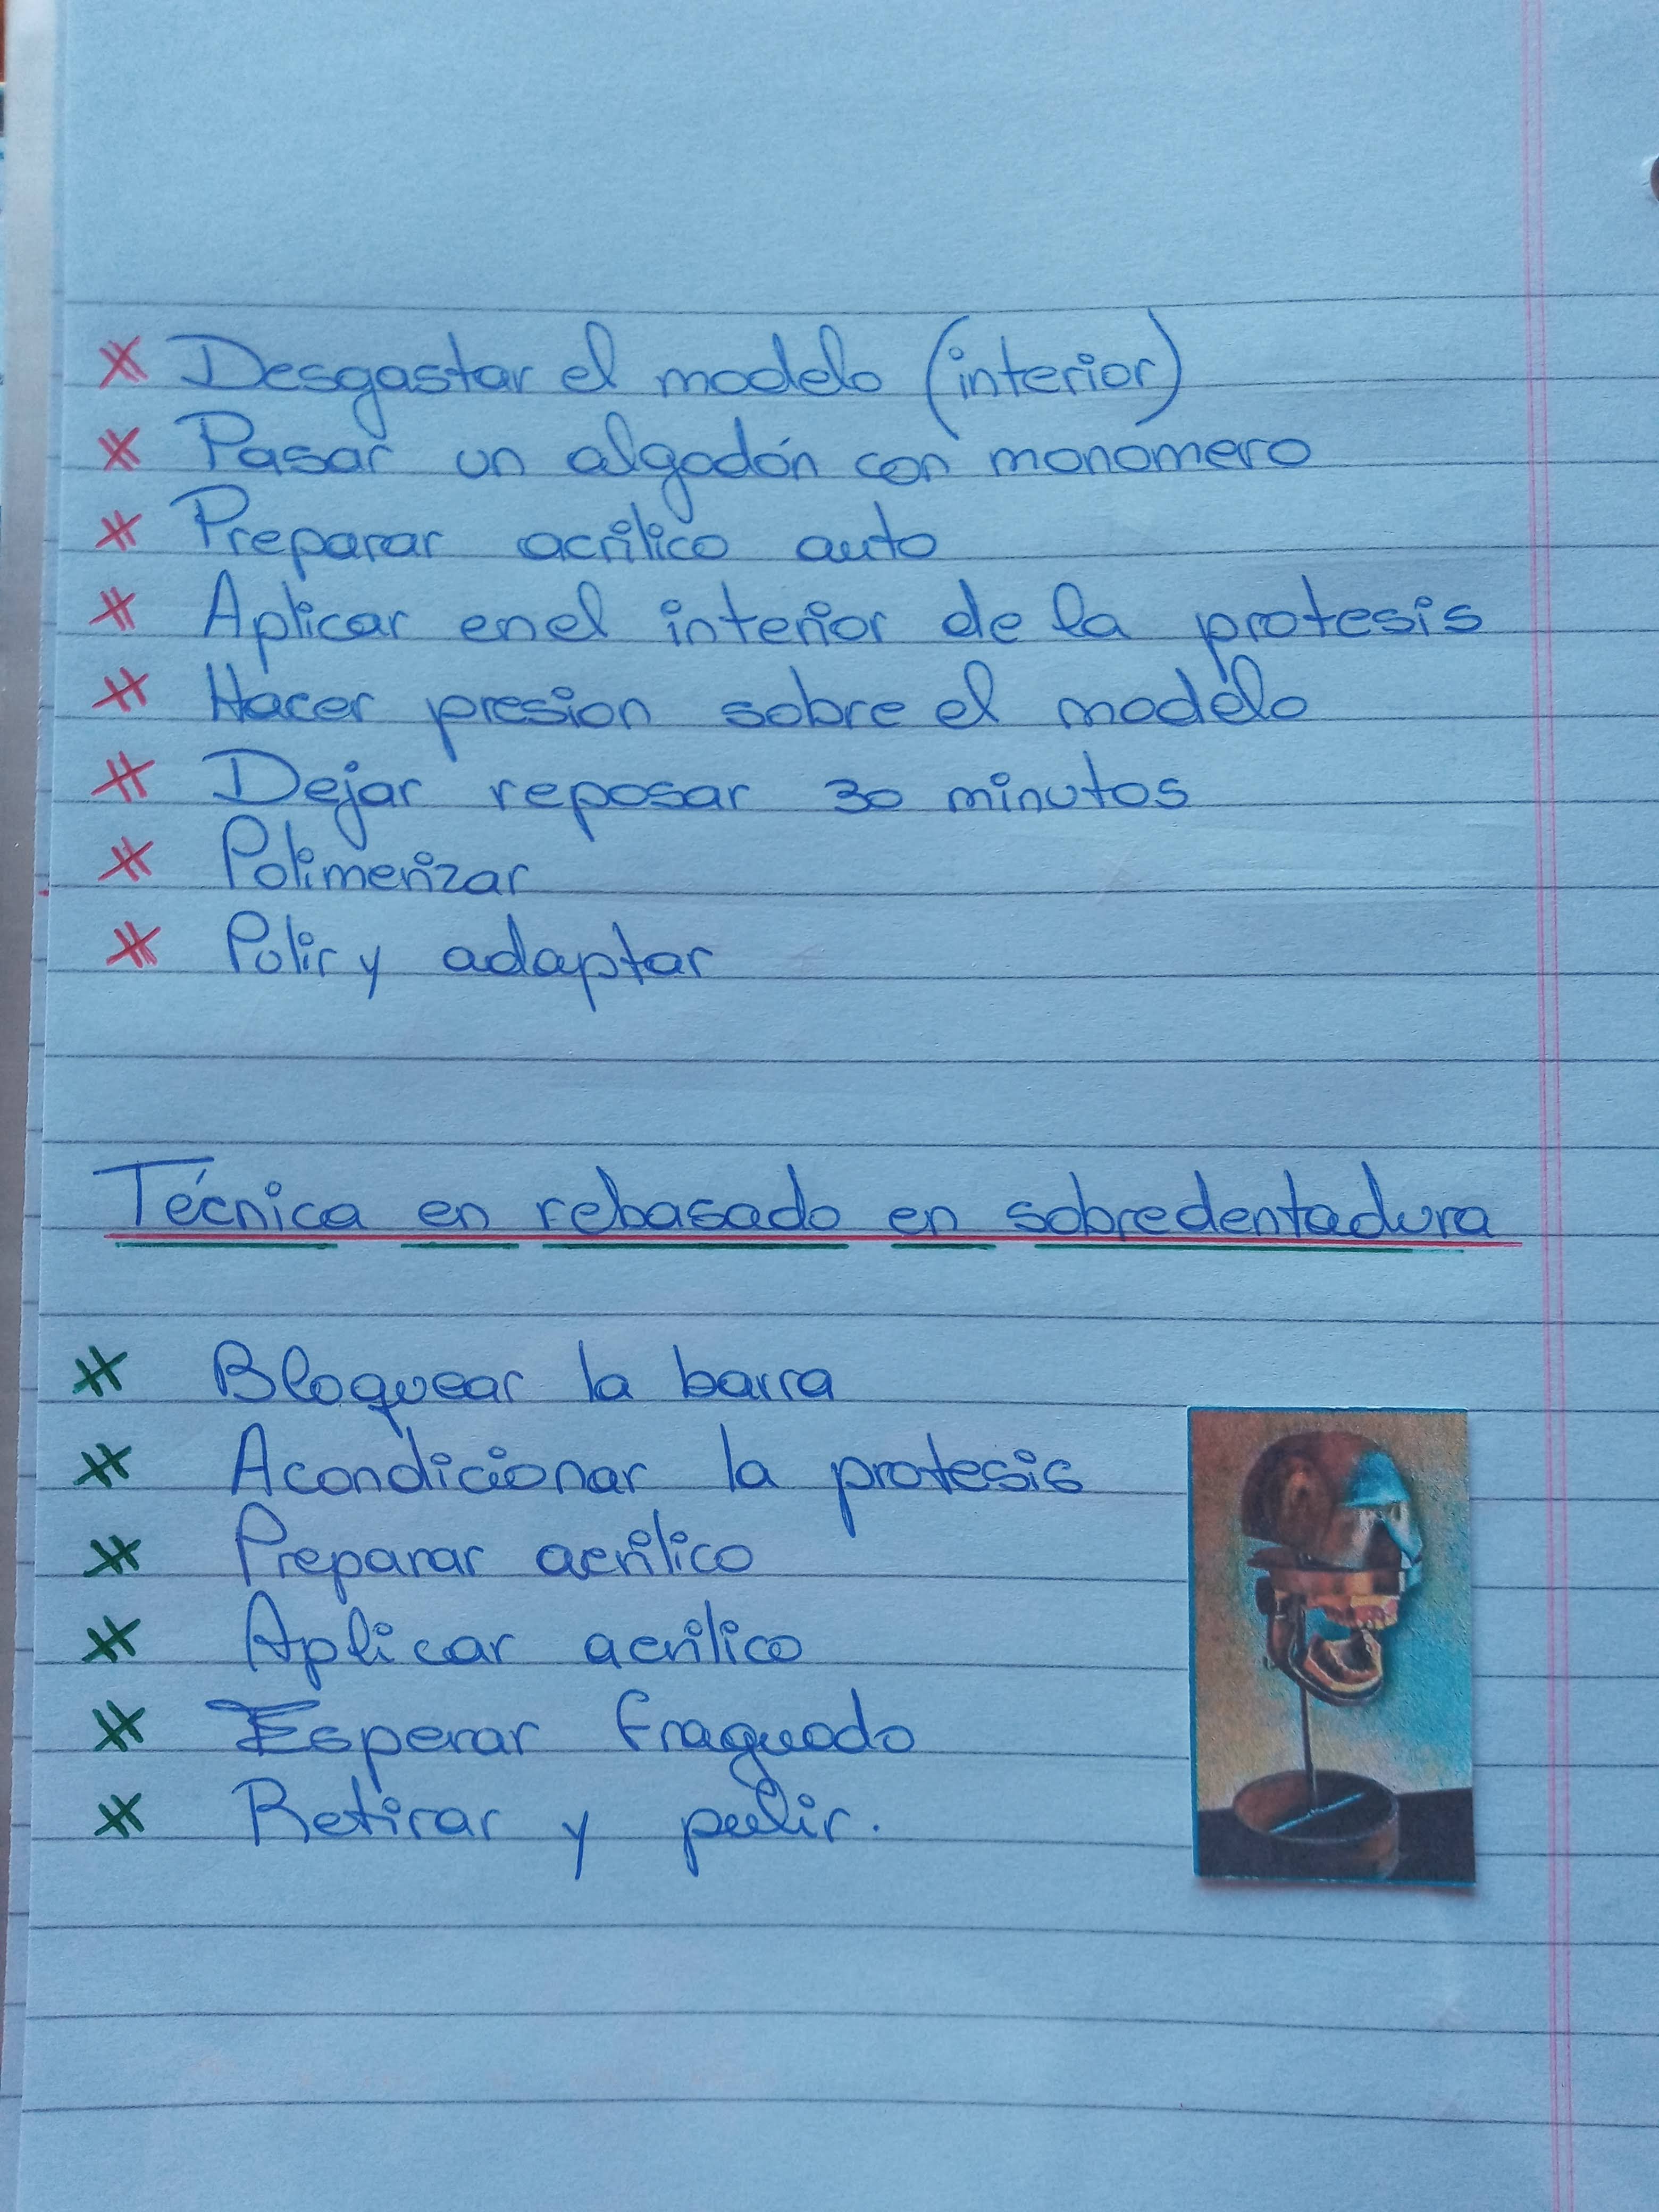 Desgastar el modelo (interior)
Pasar un algodón con monomero
Preparar acrilico auto
Aplicar en el interior de la protesis
Hacer presion sobre el modelo
Dejar reposar 30 minutos
Polimerizar
Pulir y adaptar
Técnica en rebasado en sobredentadura
Bloquear la barra
Acondicionar la protesis
Preparar acrilico
Aplicar acrilico
Esperar fraguado
Retirar y pulir.